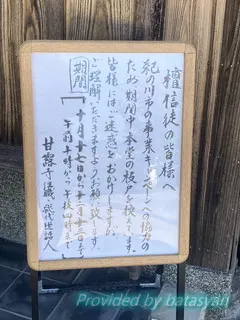 檀信徒の皆様へ
紀の川市の事業キャンペーンへの協力の
ため期間中本堂の板戸を換えてます。
皆様にはご迷惑をおかけしますが
ご理解いただきますようお願い致します。
期間
十月二十七日から十二月二十三日まで
午前九時から午後四時まで
Provided by batasyan